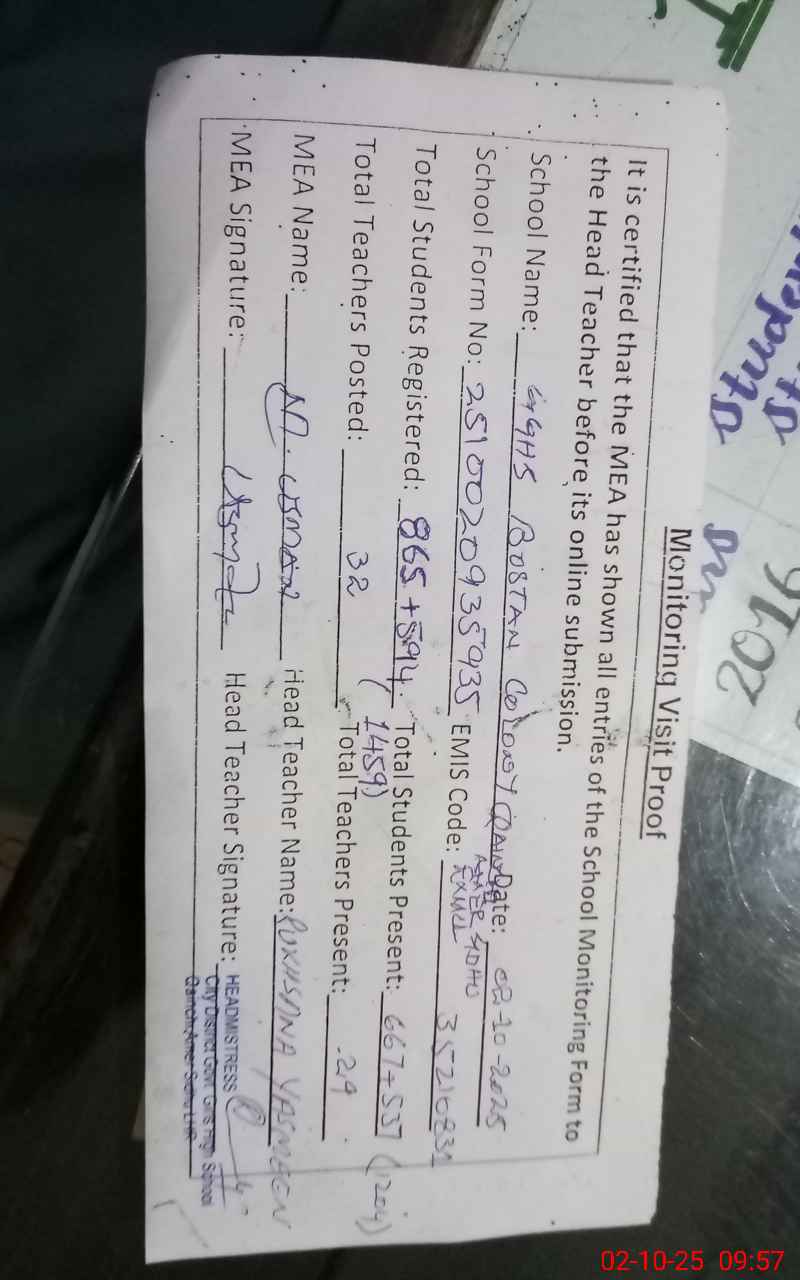 Monitoring Visit Proof
It is certified that the MEA has shown all entries of the School Monitoring Form to
the Head Teacher before its online submission.
School Name: GGHS BOSTAN COLONY Date: 02-10-2025
AMER SIDHU
School Form No: 2510020935935 EMIS Code: 35210831
Total Students Registered: 865+594. Total Students Present: 667+537 (1204)
(1459)
Total Teachers Posted: 32 Total Teachers Present: 29
MEA Name: M. USMAN Head Teacher Name: RUKHSANA YASMEEN
MEA Signature: Head Teacher Signature:
HEADMISTRESS
City District Govt Girls High School
Qainchi Amer Sidhu LHR
2016
02-10-25 09:57